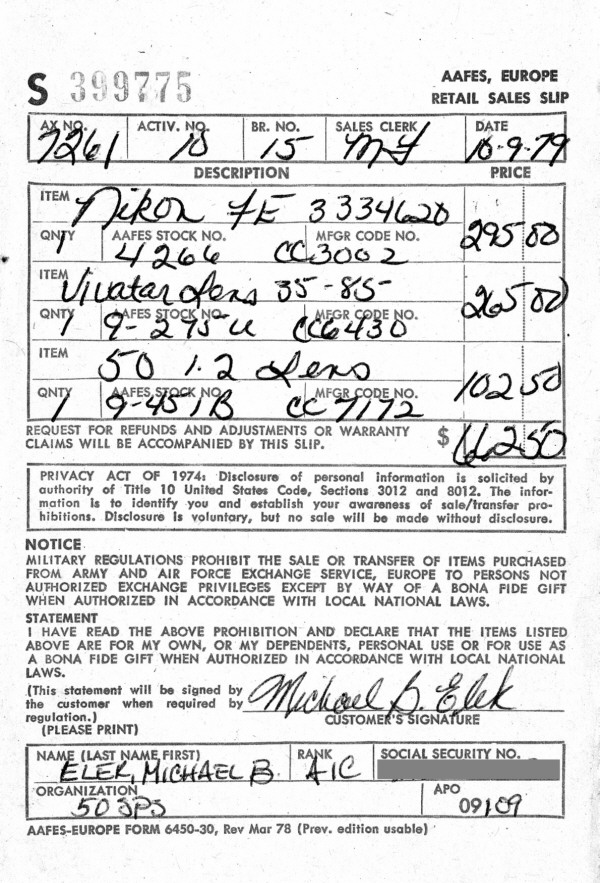 AAFES, EUROPE
S 399775
RETAIL SALES SLIP
AX NO. ACTIV. NO. BR. NO. SALES CLERK DATE
7261 10 15 MY 10-9-79
DESCRIPTION PRICE
ITEM Nikon FE 3334620
QNTY AAFES STOCK NO. MFGR CODE NO. 295 00
1 4266 CC3002
ITEM Vivatar Lens 35-85
QNTY AAFES STOCK NO. MFGR CODE NO. 265 00
1 9-295U CC6430
ITEM 50 1.2 Lens
QNTY AAFES STOCK NO. MFGR CODE NO. 102 50
1 9-451B CC7172
REQUEST FOR REFUNDS AND ADJUSTMENTS OR WARRANTY
CLAIMS WILL BE ACCOMPANIED BY THIS SLIP. $ 662 50
PRIVACY ACT OF 1974: Disclosure of personal information is solicited by
authority of Title 10 United States Code, Sections 3012 and 8012. The infor-
mation is to identify you and establish your awareness of sale/transfer pro-
hibitions. Disclosure is voluntary, but no sale will be made without disclosure.
NOTICE
MILITARY REGULATIONS PROHIBIT THE SALE OR TRANSFER OF ITEMS PURCHASED
FROM ARMY AND AIR FORCE EXCHANGE SERVICE, EUROPE TO PERSONS NOT
AUTHORIZED EXCHANGE PRIVILEGES EXCEPT BY WAY OF A BONA FIDE GIFT
WHEN AUTHORIZED IN ACCORDANCE WITH LOCAL NATIONAL LAWS.
STATEMENT
I HAVE READ THE ABOVE PROHIBITION AND DECLARE THAT THE ITEMS LISTED
ABOVE ARE FOR MY OWN, OR MY DEPENDENTS, PERSONAL USE OR FOR USE AS
A BONA FIDE GIFT WHEN AUTHORIZED IN ACCORDANCE WITH LOCAL NATIONAL
LAWS.
(This statement will be signed by
the customer when required by Michael B. Elek
regulation.) CUSTOMER'S SIGNATURE
(PLEASE PRINT)
NAME (LAST NAME, FIRST) RANK SOCIAL SECURITY NO.
ELEK, MICHAEL B. A1C
ORGANIZATION APO
50 SPS 09109
AAFES-EUROPE FORM 6450-30, Rev Mar 78 (Prev. edition usable)